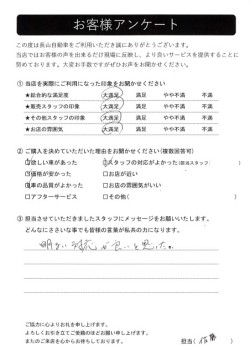 お客様アンケート
この度は長山自動車をご利用いただき誠にありがとうございます。
当店ではお客様の声を出来るだけ現場に反映し、より良いサービスを提供することに
努めております。大変お手数ですがぜひお声をお聞かせください。
① 当店を実際にご利用になった印象をお聞かせください
★総合的な満足度 大満足 満足 やや不満 不満
★販売スタッフの印象 大満足 満足 やや不満 不満
★その他スタッフの印象 大満足 満足 やや不満 不満
★お店の雰囲気 大満足 満足 やや不満 不満
② ご購入を決めていただいた理由をお聞かせください(複数回答可)
□欲しい車があった □スタッフの対応がよかった(担当スタッフ )
□価格が安かった □お店が近い
□車の品質がよかった □お店の雰囲気がいい
□アフターサービス □その他( )
③ 担当させていただきましたスタッフにメッセージをお願いいたします。
どんなにささいな事でも皆様の言葉が私共の力になります。
明るい対応が良いと思った。
ご協力に心よりお礼を申し上げます。
よろしくお引き立てご愛顧のほどお願い申し上げます。
またのご来店を心からお待ちしております。
担当( 佐藤 )